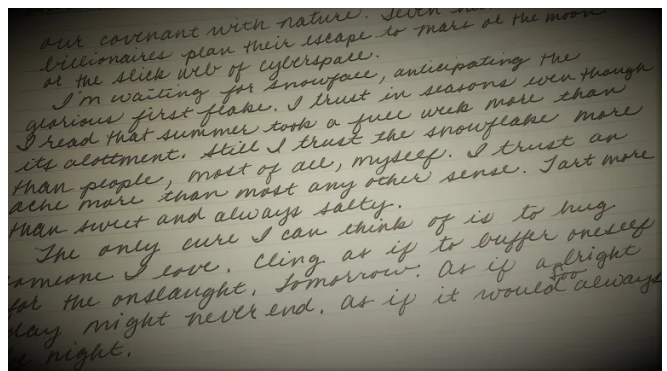 our covenant with nature. Seven
billionaires plan their escape to Mars or the moon
or the slick web of cyberspace.
I'm waiting for snowface, anticipating the
glorious first flake. I trust in seasons even though
I read that summer took a full week more than
its alottment. Still I trust the snowflake more
than people, most of all, myself. I trust an
ache more than most any other sense. Tart more
than sweet and always salty.
The only cure I can think of is to hug
someone I love. Cling as if to buffer oneself
for the onslaught. Tomorrow. As if a bright
day might never end. As if it would too always
be night.